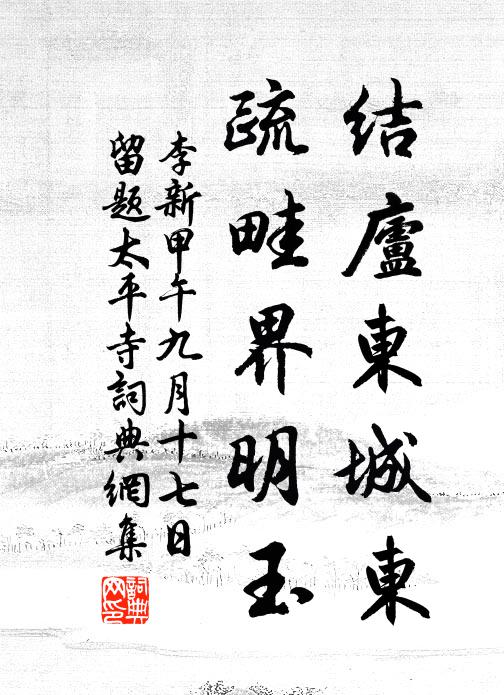 結廬東城東
疏畦界明玉
李新甲午九月十七日
留題太平寺詞典網集
詞典
网印